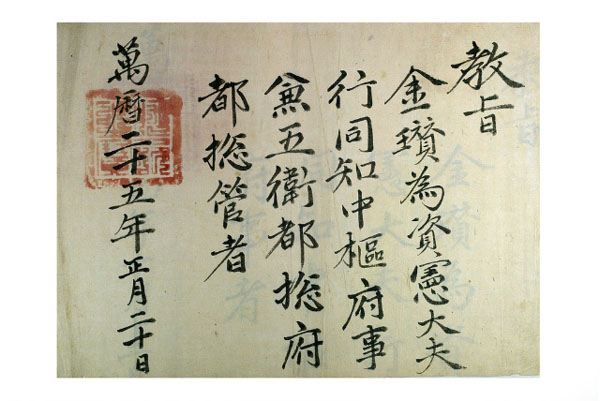 教旨
金瓚為資憲大夫
行同知中樞府事
兼五衛都捴府
都捴管者
萬曆二十五年正月二十日